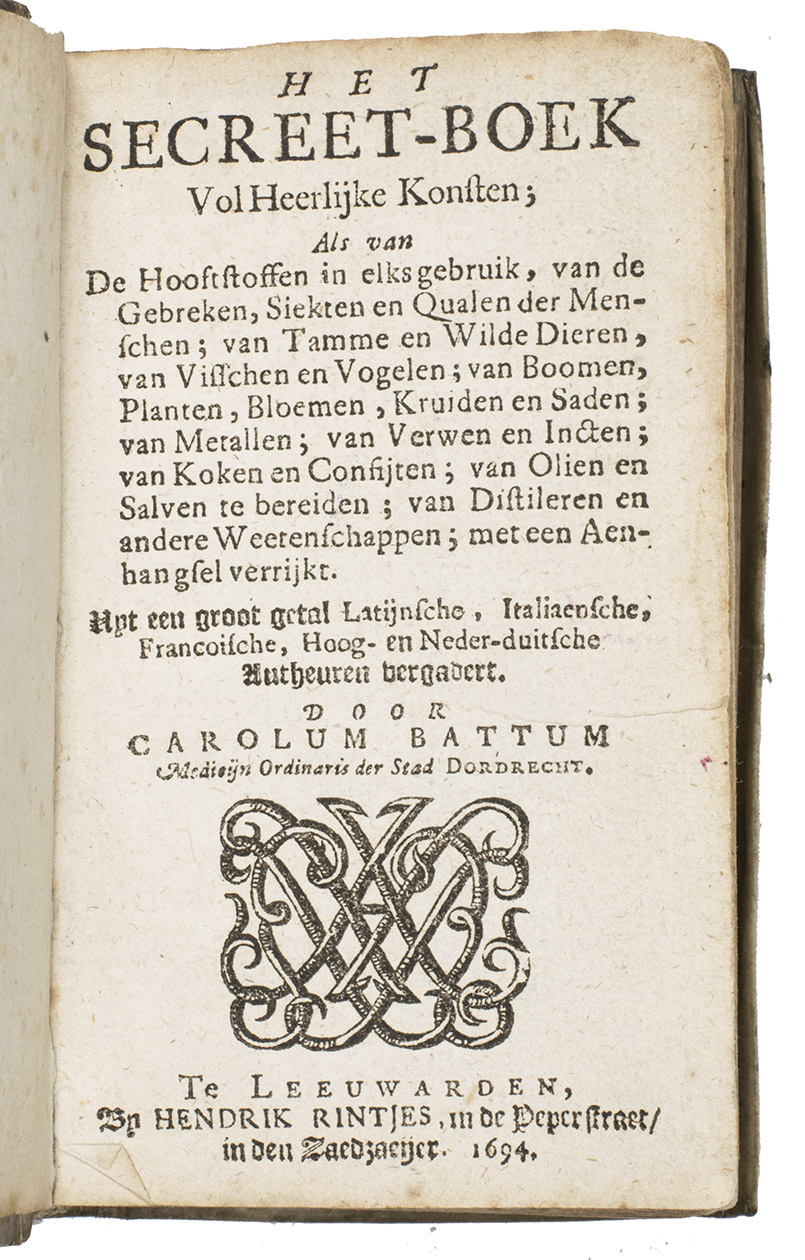 HET
SECREET-BOEK
Vol Heerlijke Konſten;
Als van
De Hooftſtoffen in elks gebruik, van de
Gebreken, Siekten en Qualen der Men-
ſchen; van Tamme en Wilde Dieren,
van Viſſchen en Vogelen; van Boomen,
Planten, Bloemen, Kruiden en Saden;
van Metallen; van Verwen en Incten;
van Koken en Confijten; van Olien en
Salven te bereiden; van Diſtileren en
andere Weetenſchappen; met een Aen-
hangſel verrijkt.
Uyt een groot getal Latijnſche, Italiaenſche,
Francoiſche, Hoog- en Neder-duitſche
Autheuren vergadert.
DOOR
CAROLUM BATTUM
Medicijn Ordinaris der Stad DORDRECHT.
Te LEEUWARDEN,
By HENDRIK RINTJES, in de Peperſtraet/
in den Zaedzaeijer. 1694.